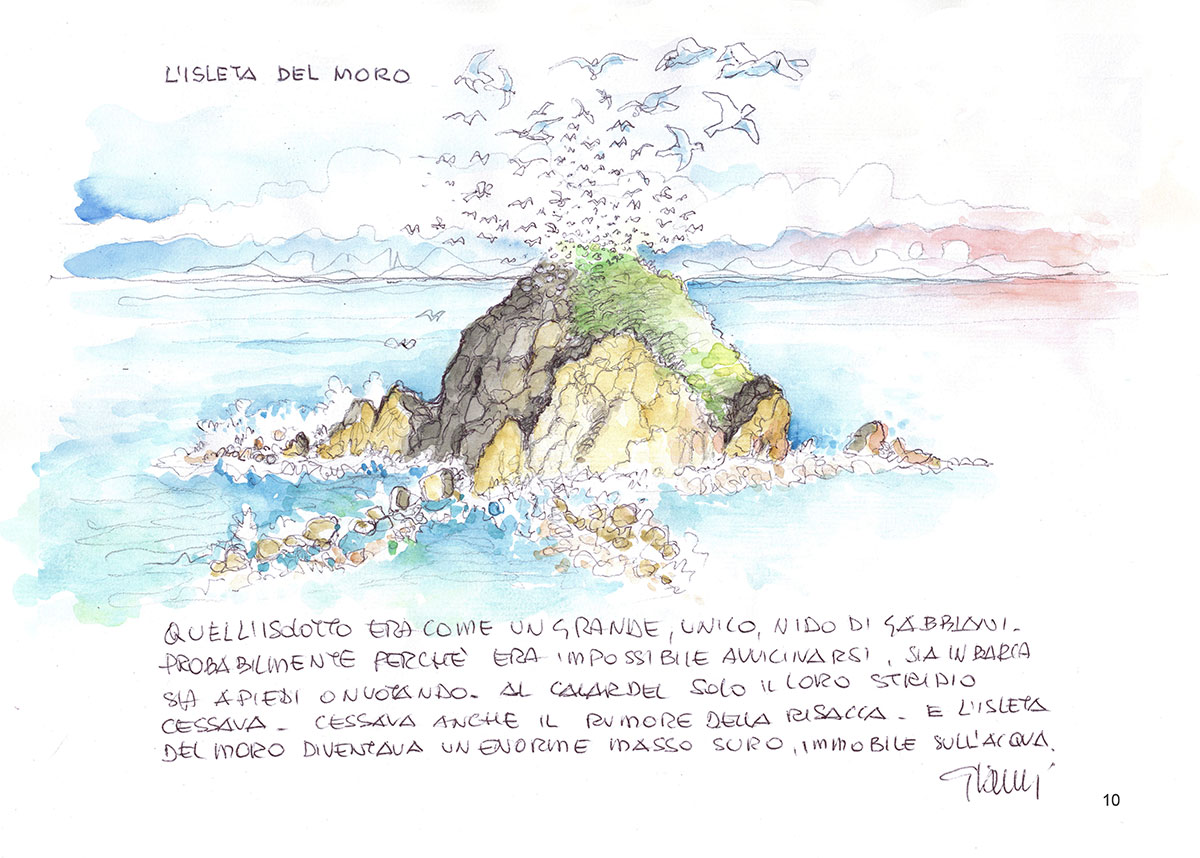 L'ISLETA DEL MORO
QUELL'ISOLOTTO ERA COME UN GRANDE, UNICO, NIDO DI GABBIANI.
PROBABILMENTE PERCHÈ ERA IMPOSSIBILE AVVICINARSI, SIA IN BARCA
SIA A PIEDI O NUOTANDO. AL CALAR DEL SOLO IL LORO STRIDIO
CESSAVA. CESSAVA ANCHE IL RUMORE DELLA RISACCA. E L'ISLETA
DEL MORO DIVENTAVA UN ENORME MASSO SURO, IMMOBILE SULL'ACQUA.
Gianni
10